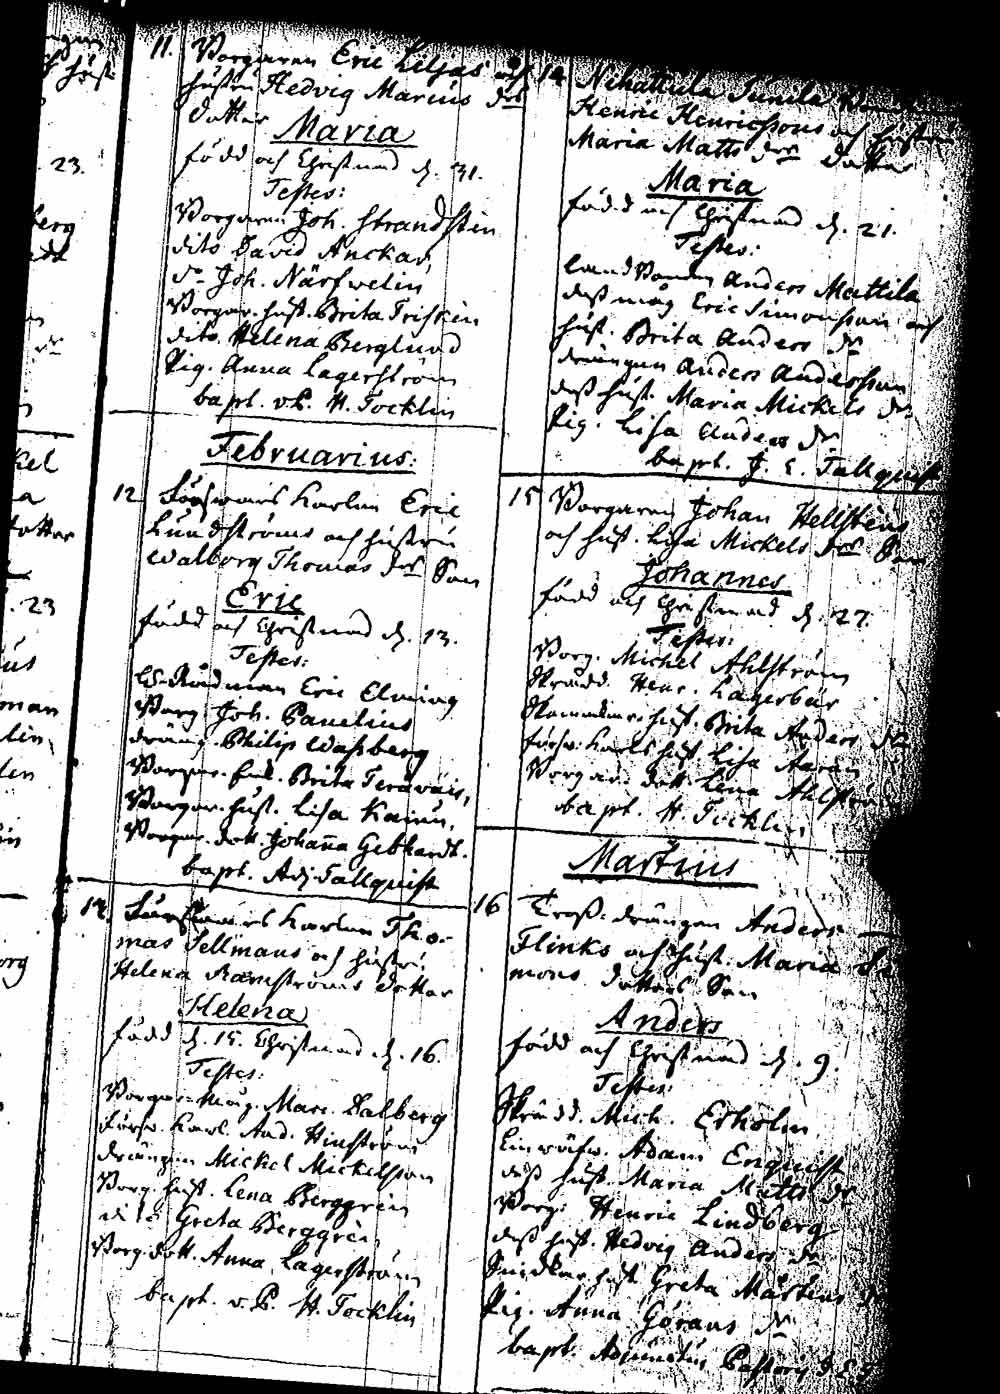 23.
berg
kel
a
dotter
. 23
us
man
lin,
11. Borgaren Eric Liljas och
hustru Hedvig Marius dr
dotter
Maria
född och Christnad d. 31.
Testes:
Borgaren Joh. Strandsten
dito David Anckar,
do Joh. Närfwelin
Borgar. hust. Brita Trisken
dito Helena Berglund
Pig. Anna Lagerström
bapt. v.P. H. Tocklin
Februarius.
12. Förswars Karlen Eric
Lundströms och hustru
Walborg Thomas dr Son
Eric
född och Christnad d. 13.
Testes:
Rådman Eric Elming
Borg. Joh. Panelius
dräng. Philip Wasberg
Borgar. Brita Teraväis,
Borgar. hust. Lisa
Borgar. dott. Johana Gebhardt.
bapt. Adj. Tallquist
Förswars Karlen Tho-
mas Sellmans och hustru
Helena Ramströms dotter
Helena
född d. 15. Christnad d. 16.
Testes:
Borgar. Måg. Marc. Dalberg
Förs. Karl. And. Hinström
drängen Michel Michelsson
Borg. hust. Lena Berggren
dito Greta Berggren
Borg. dott. Anna Lagerström
bapt. v. P. H. Tocklin
14. Nihattula Sunila
Henric Henricssons och hustrus
Maria Matts dr dotter
Maria
född och Christnad d. 21.
Testes:
Landbonden Anders Mattila
dess måg Eric Simonsson och
hust. Brita Anders dr
drängen Anders Andersson
dess hust. Maria Mickels dr
Pig. Lisa Anders dr
bapt. J. E. Tallquist
15 Borgaren Johan Hellstens
och hust. Lisa Mickels dr Son
Johannes
född och Christnad d. 27.
Testes:
Borg. Michel Ahlström
Skrädd. Henr. Lagerbär
hust. Brita Anders dr
förs. Karls hust. Lisa Aaron
Borgar. dott. Lena Ahlström
bapt. H. Tocklin
Martius
16 Tross drängen Anders
Flinks och hust. Maria Si-
mons dotters Son
Anders
född och Christnad d. 9.
Testes:
Skrädd. Mich. Erholm
Linwäfw. Adam Enquist
dess hust. Maria Matts dr
Borg. Henric Lindberg
dess hust. Hedvig Anders dr
hust. Greta Mårtens dr
Pig. Anna Görans dr
bapt. Adjunctus Pastoris J. E. T